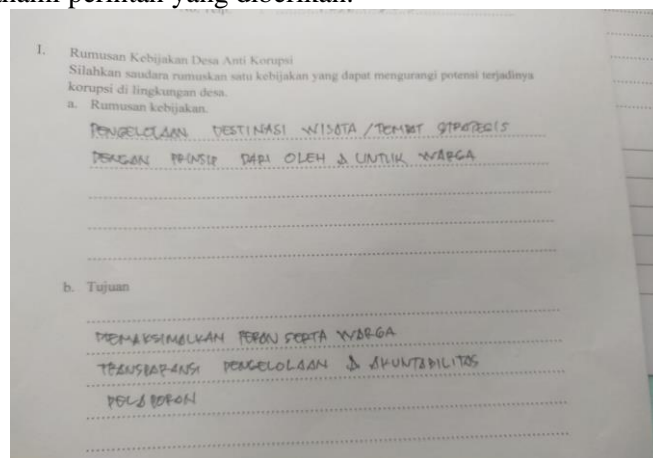 I. Rumusan Kebijakan Desa Anti Korupsi
Silahkan saudara rumuskan satu kebijakan yang dapat mengurangi potensi terjadinya
korupsi di lingkungan desa.
a. Rumusan kebijakan.
PENGELOLAAN DESTINASI WISATA / TEMPAT STRATEGIS
DENGAN PRINSIP DARI OLEH & UNTUK WARGA
b. Tujuan
MEMAKSIMALKAN PERAN SERTA WARGA
TRANSPARANSI PENGELOLAAN & AKUNTABILITAS
PELAPORAN